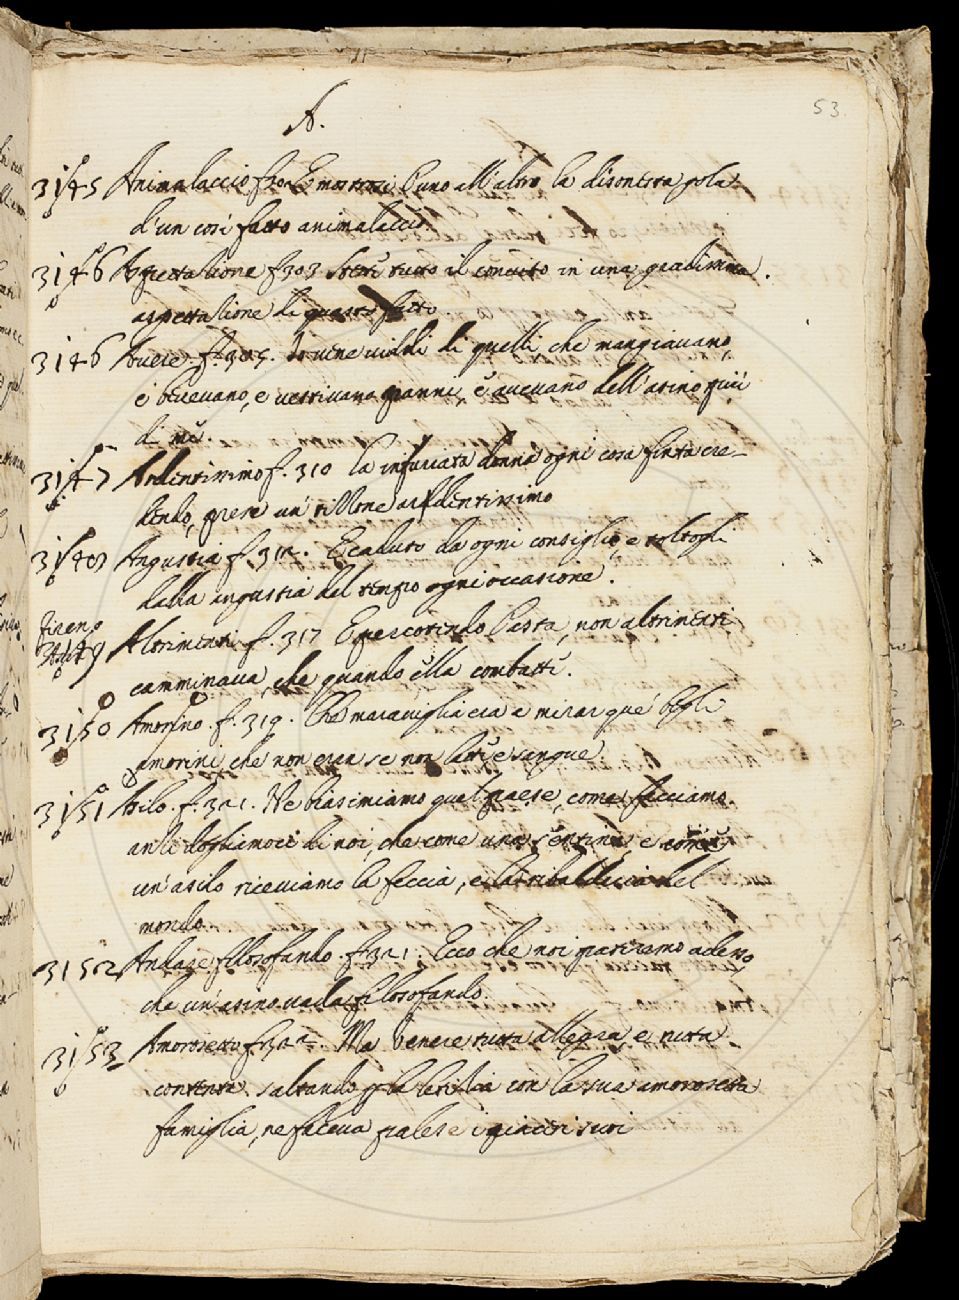 A.
53.
3145 Animalaccio f. 302 E mostrosi l'uno all'altro la disonesta gola
d'un così fatto animalaccio
3146 Aspettazione f. 303. Stette tutto il convito in una grandissima
aspettazione di questo fatto
3146 Avere. f. 305. Io vene viddi di quelli che mangiavano
e bevevano, e vestivano panni, e avevano dell'asino più
di me.
3147 Ardentissimo f. 310 La infuriata donna ogni cosa finta cre-
dendo, prese un tizzone ardentissimo
3148 Angustia f. 312. E caduto da ogni consiglio e toltogli
dalla angustia del tempo ogni occasione.
3149 Altrimenti f. 317 E percotendo l'asta, non altrimenti
camminava, che quando ella combatte.
3150 Amorino. f. 319. Che maraviglia era a mirar que' begli
amorini che non eran se non latte e sangue.
3151 Asilo. f. 321. Ne biasimiamo quel paese, come facciamo.
anzi dogliamoci di noi, che come una sentina, e come
un'asilo riceviamo la feccia, e la ribalderia del
mondo.
3152 Andare filosofando. f. 321. Ecco che noi patiremo adesso,
che un'asino vada filosofando.
3153 Amorosetto f. 322. Ma Venere tutta allegra, e tutta
contenta. saltando p la letizia con la sua amorosetta
famiglia, ne faceva palese i piaceri suoi